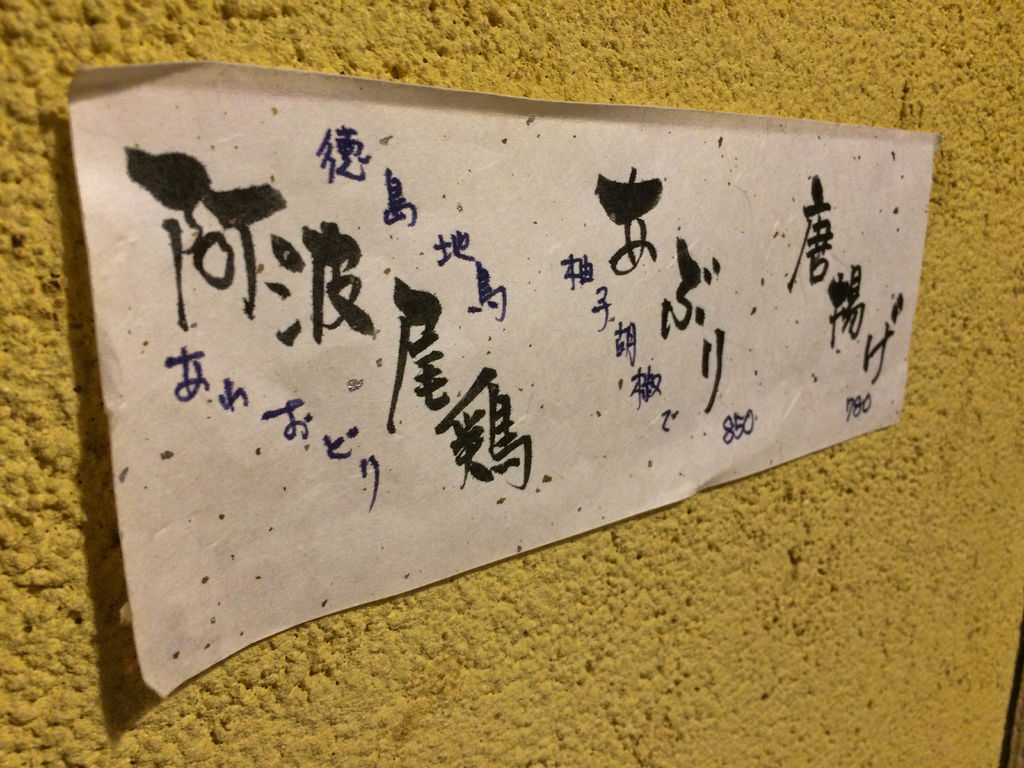 阿波尾鶏
徳島地鳥
あわおどり
あぶり
柚子胡椒で
850
唐揚げ
780